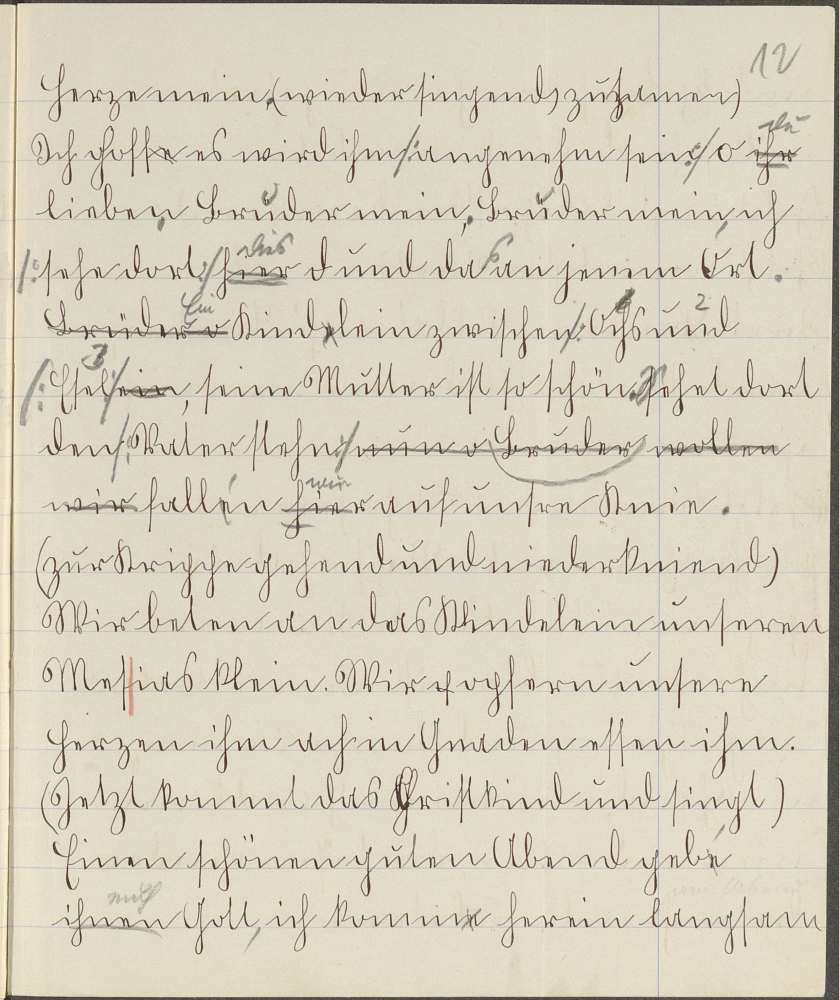 12
Herze mein, (wieder singend, zuzamen)
Ich hoffe es wird ihm /: angenehm sein :/ O ihr du
lieben Bruder mein, Bruder mein, ich
/: sehe dort :/ hier dies d und da s an jenem Ort.
Brüder o Ein Kindelein zwischen /: Ochs und 2
/: Esel :/ 3 ein, seine Mutter ist so schön. Sehet dort
den /: Vater stehn :/ nun o Bruder wollen
wir fallen hier wir auf unsre Knie.
(zur Krippe gehend und niederkniend)
Wir beten an das Kindelein unseren
Messias klein. Wir opfern unsere
Herzen ihm ach in Gnaden essen ihm.
(Jetzt kommt das Christkind und singt)
Einen schönen guten Abend gebe
ihnen euch Gott, ich komme herein langsam